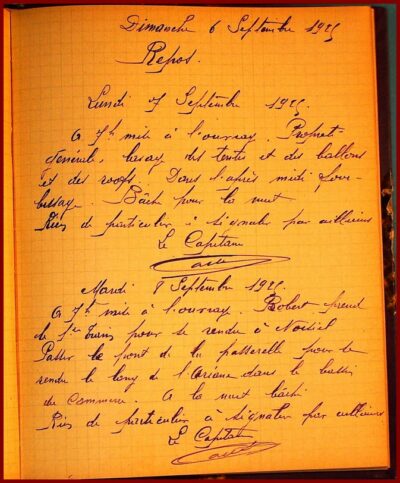 Dimanche 6 Septembre 1925
Repos.
Lundi 7 Septembre 1925.
A 7h mise à l'ouvrage. Propreté
générale, lavage des tentes et des ballons
et des roofs. Dans l'après midi four-
bissage. Bâché pour la nuit
Rien de particulier à signaler par ailleurs
Le Capitaine
Mardi 8 Septembre 1925.
A 7h mise à l'ouvrage. Robert prend
le 1er train pour se rendre à Noisiel
Passer le pont de la passerelle pour se
rendre le long de l'Ariane dans le bassin
du Commerce. A la nuit bâché
Rien de particulier à signaler par ailleurs
Le Capitaine